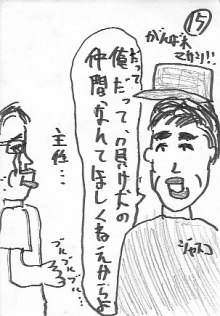 ⑮
がんばれ
マカリ!!
だって
俺だって、負け犬の
仲間なんてほしくねえからよ
主任…
ブルブル
ブルブル…
ジャスコ